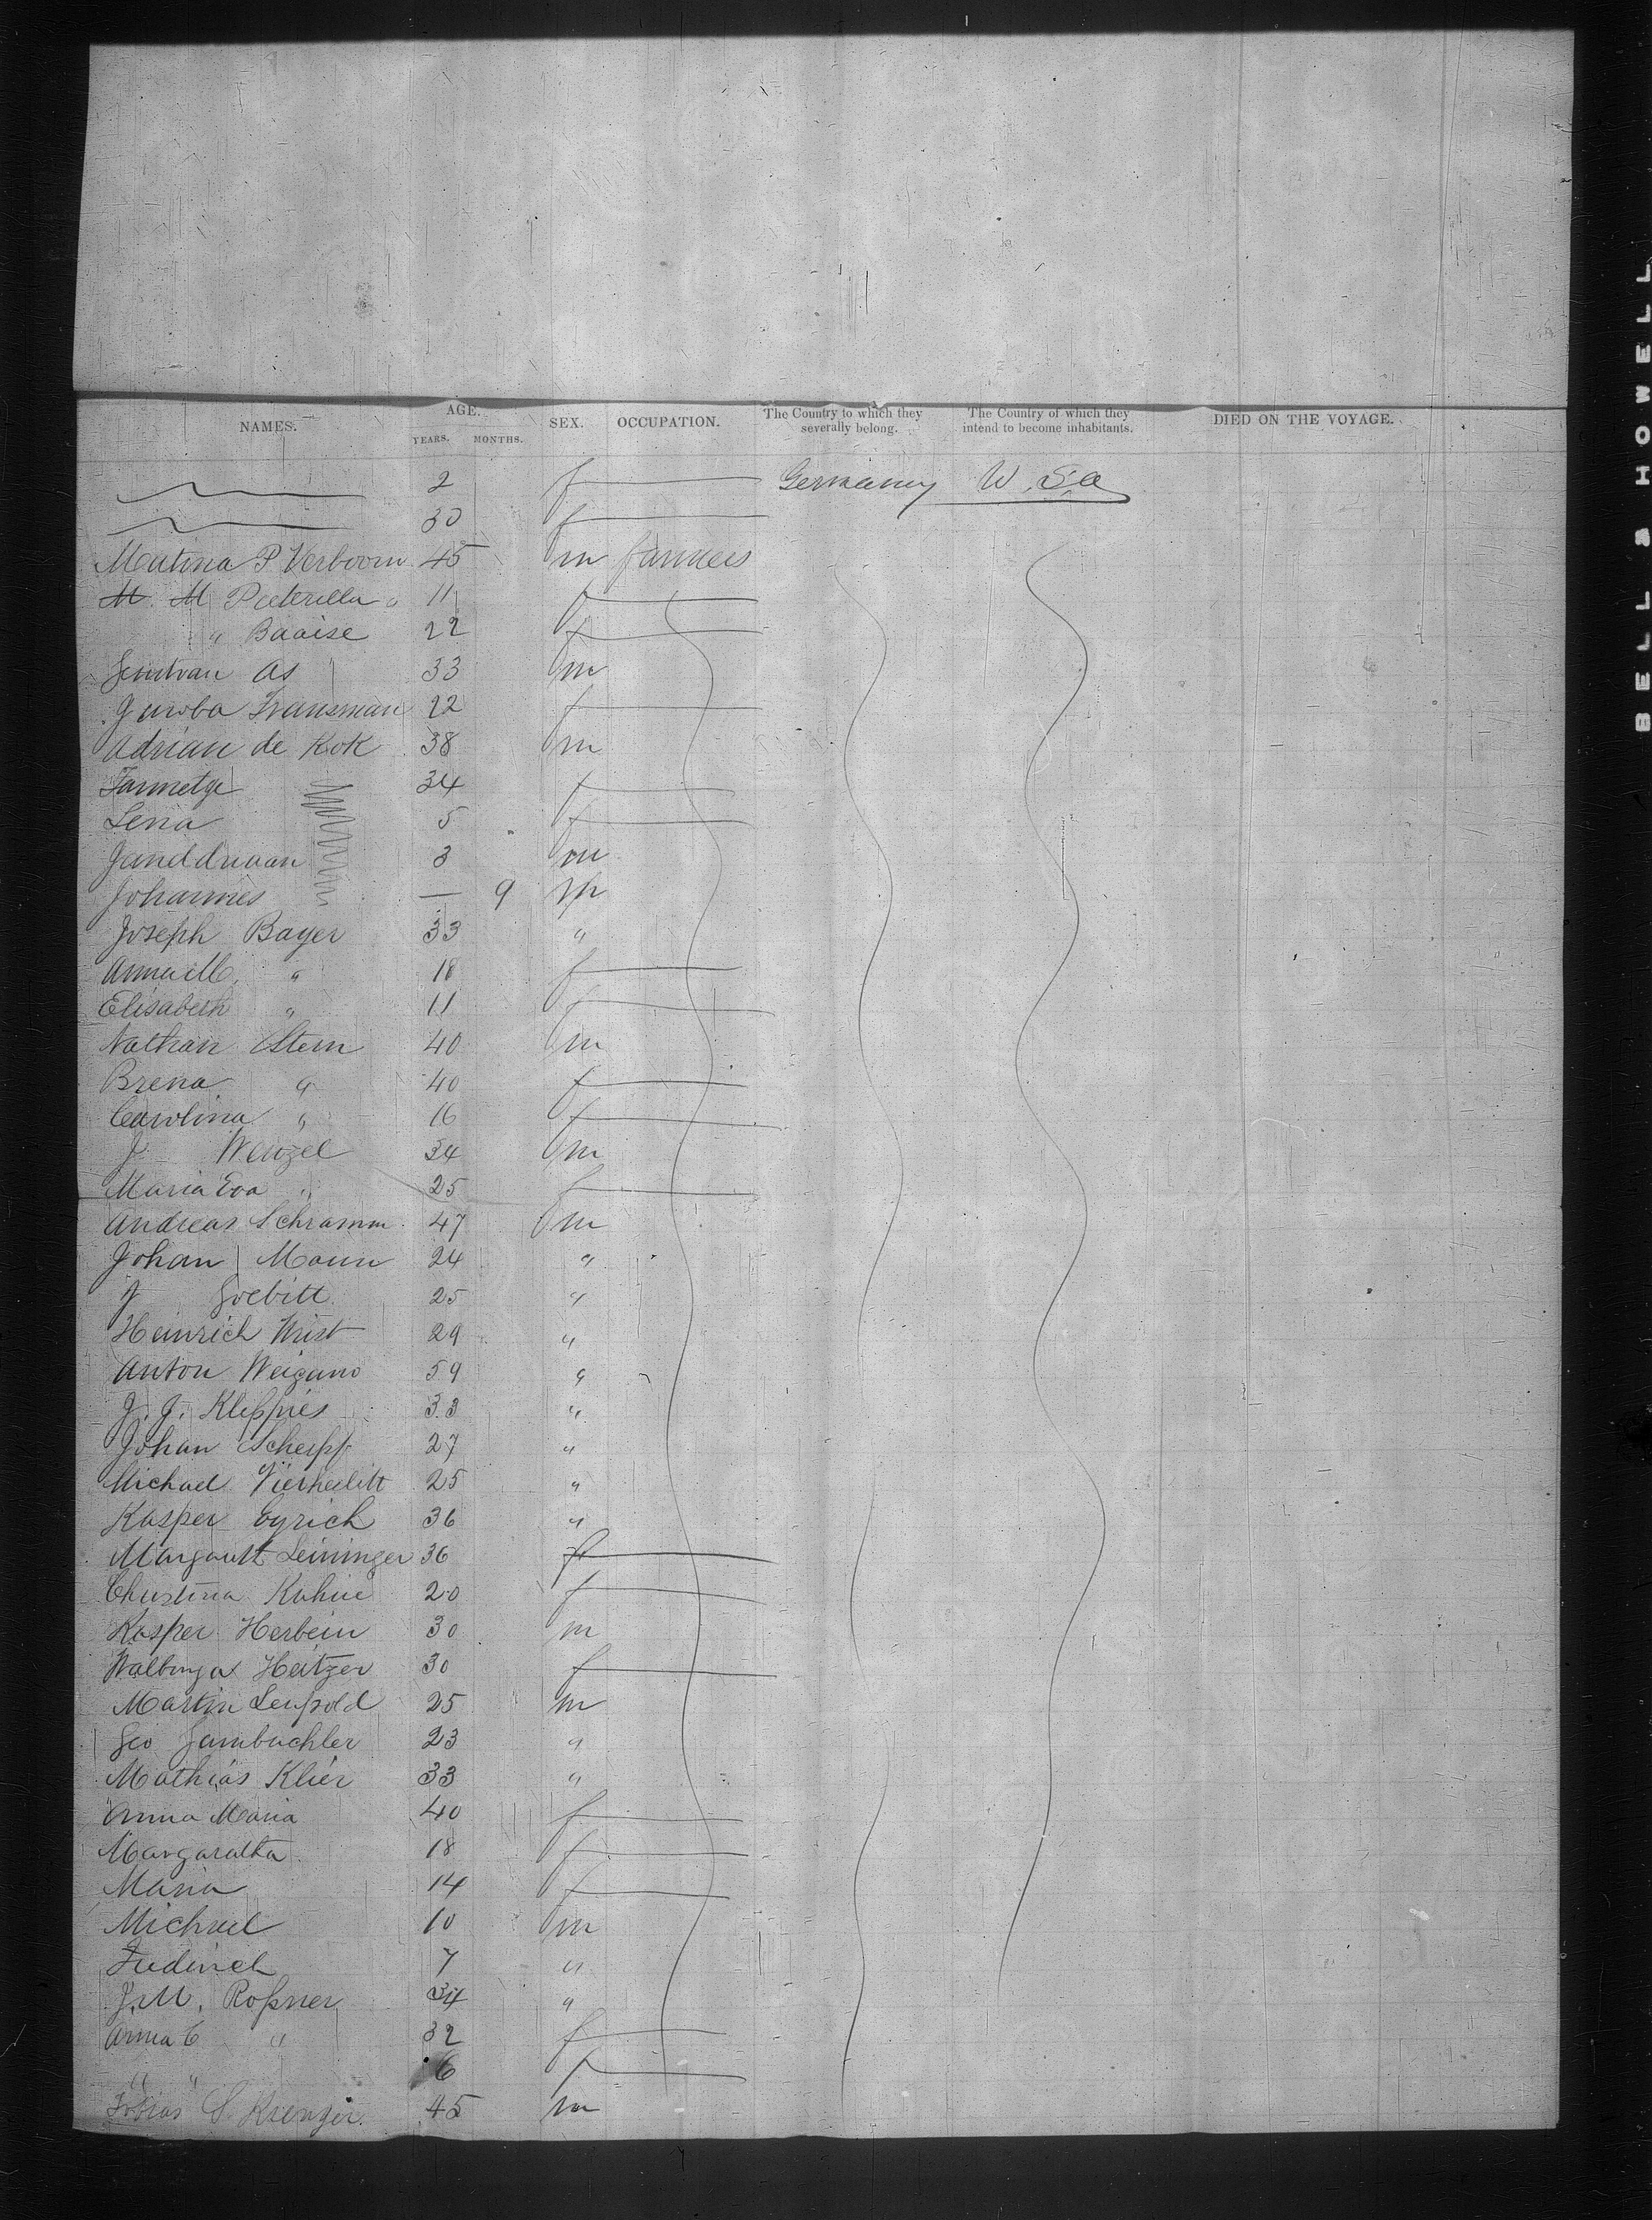 NAMES. AGE. YEARS. MONTHS. SEX. OCCUPATION. The Country to which they severally belong. The Country of which they intend to become inhabitants. DIED ON THE VOYAGE.
2 f Germany U.S.A
30 f
P Verboom 45 m farmers
M. M Pieterella " 11 f
" 22 f
As 33 m
22 f
Adrian de Kok 38 m
34 f
Lena 5 f
3 m
Johannes — 9 m
Joseph Bayer 33 "
Anna M. " 18 f
Elisabeth " 11 f
Nathan Stern 40 m
Brena " 40 f
Carolina " 16 f
J Wenzel 34 m
Maria Eva " 25 f
Andreas Schramm 47 m
Johan Mann 24 "
J 25 "
Heinrich Wust 29 "
Anton Weigand 59 "
J. J. Kleppies 33 "
Johan 27 "
Michael 25 "
Kasper Eyrich 36 "
Margarett Leininger 36 f
Christina Kuhne 20 f
Kasper Herbein 30 m
Walburga Heitzer 30 f
Martin Leupold 25 m
Geo 23 "
Mathias Klier 33 "
Anna Maria 40 f
Margaratha 18 f
Maria 14 f
Michael 10 m
7 "
J. M. Roßner 34 "
Anna C " 32 f
" " 6 f
Tobias S. 45 m
BELL & HOWELL